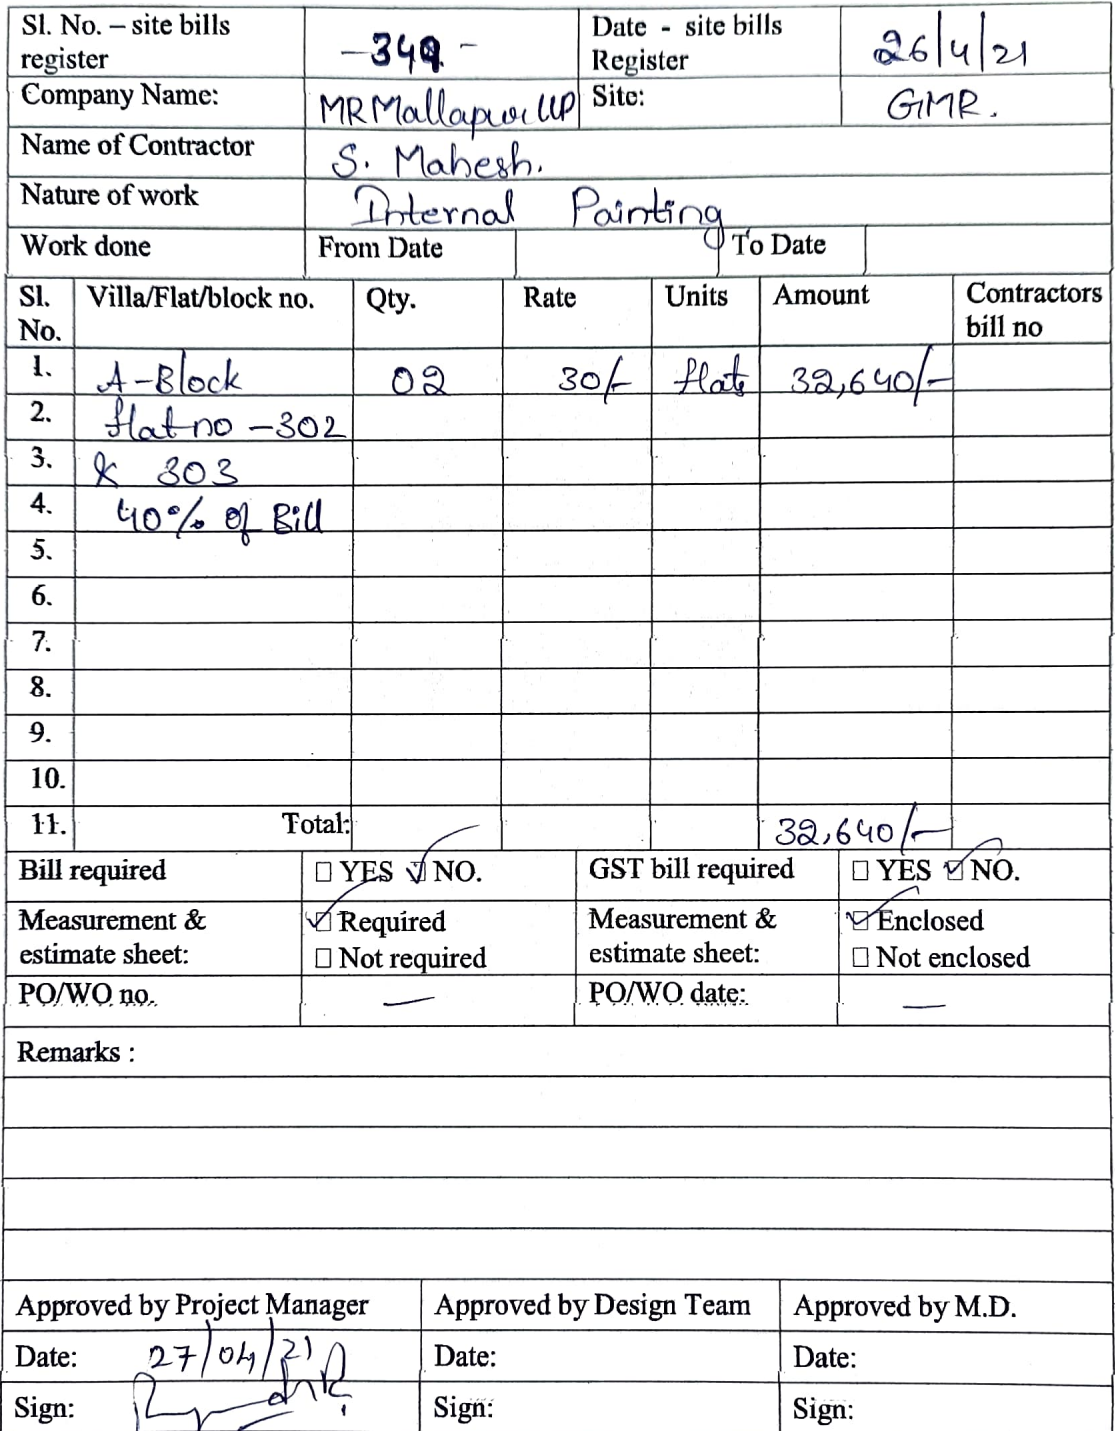 Sl. No. – site bills register -349- Date - site bills Register 26/4/21
Company Name: MR Mallapur LLP Site: GMR.
Name of Contractor S. Mahesh.
Nature of work Internal Painting
Work done From Date To Date
Sl. No. Villa/Flat/block no. Qty. Rate Units Amount Contractors bill no
1. A-Block 02 30/- flats 32,640/-
2. flat no -302
3. & 303
4. 40% of Bill
5.
6.
7.
8.
9.
10.
11. Total: 32,640/-
Bill required YES NO. GST bill required YES NO.
Measurement & estimate sheet: Required Not required Measurement & estimate sheet: Enclosed Not enclosed
PO/WO no. — PO/WO date: —
Remarks :
Approved by Project Manager Approved by Design Team Approved by M.D.
Date: 27/04/21 Date: Date:
Sign: Sign: Sign: